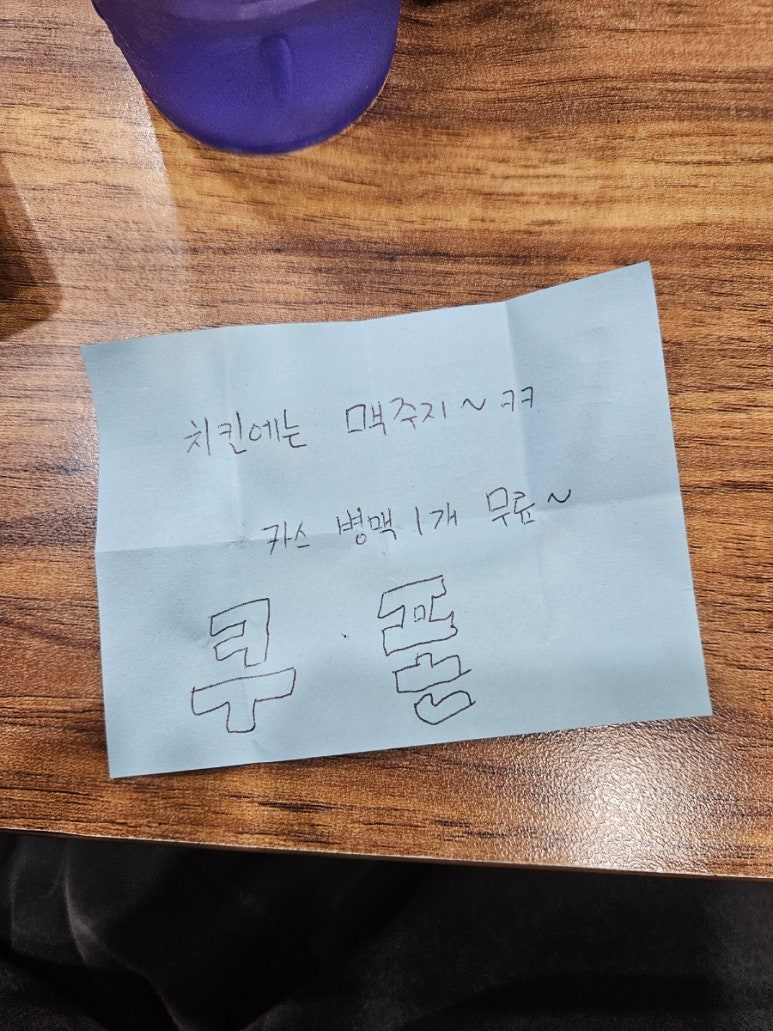 치킨에는 맥주지~ ㅋㅋ
카스 병맥 1개 무료~
쿠·폰